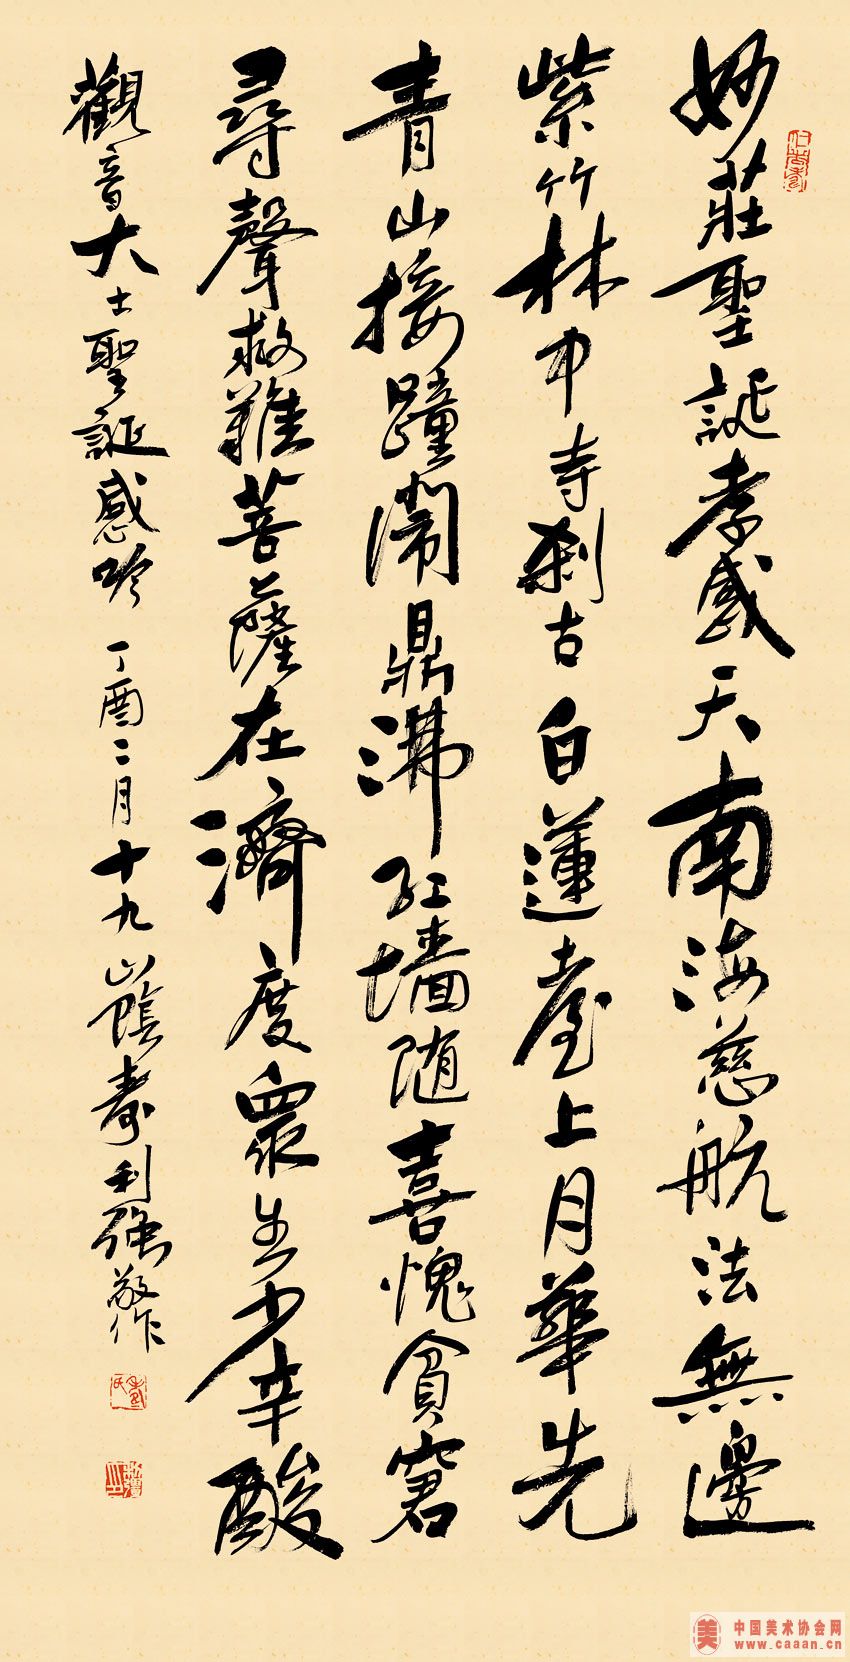 妙莊聖誕孝感天南海慈航法無邊
紫竹林中寺刹古白蓮臺上月華先
青山接踵鬧鼎沸红墙随喜愧貪窘
尋聲救難菩薩在濟度眾生少辛酸
觀音大士聖誕感吟丁酉二月十九山陰壽利強敬作
中国美术协会网
www.caaan.cn